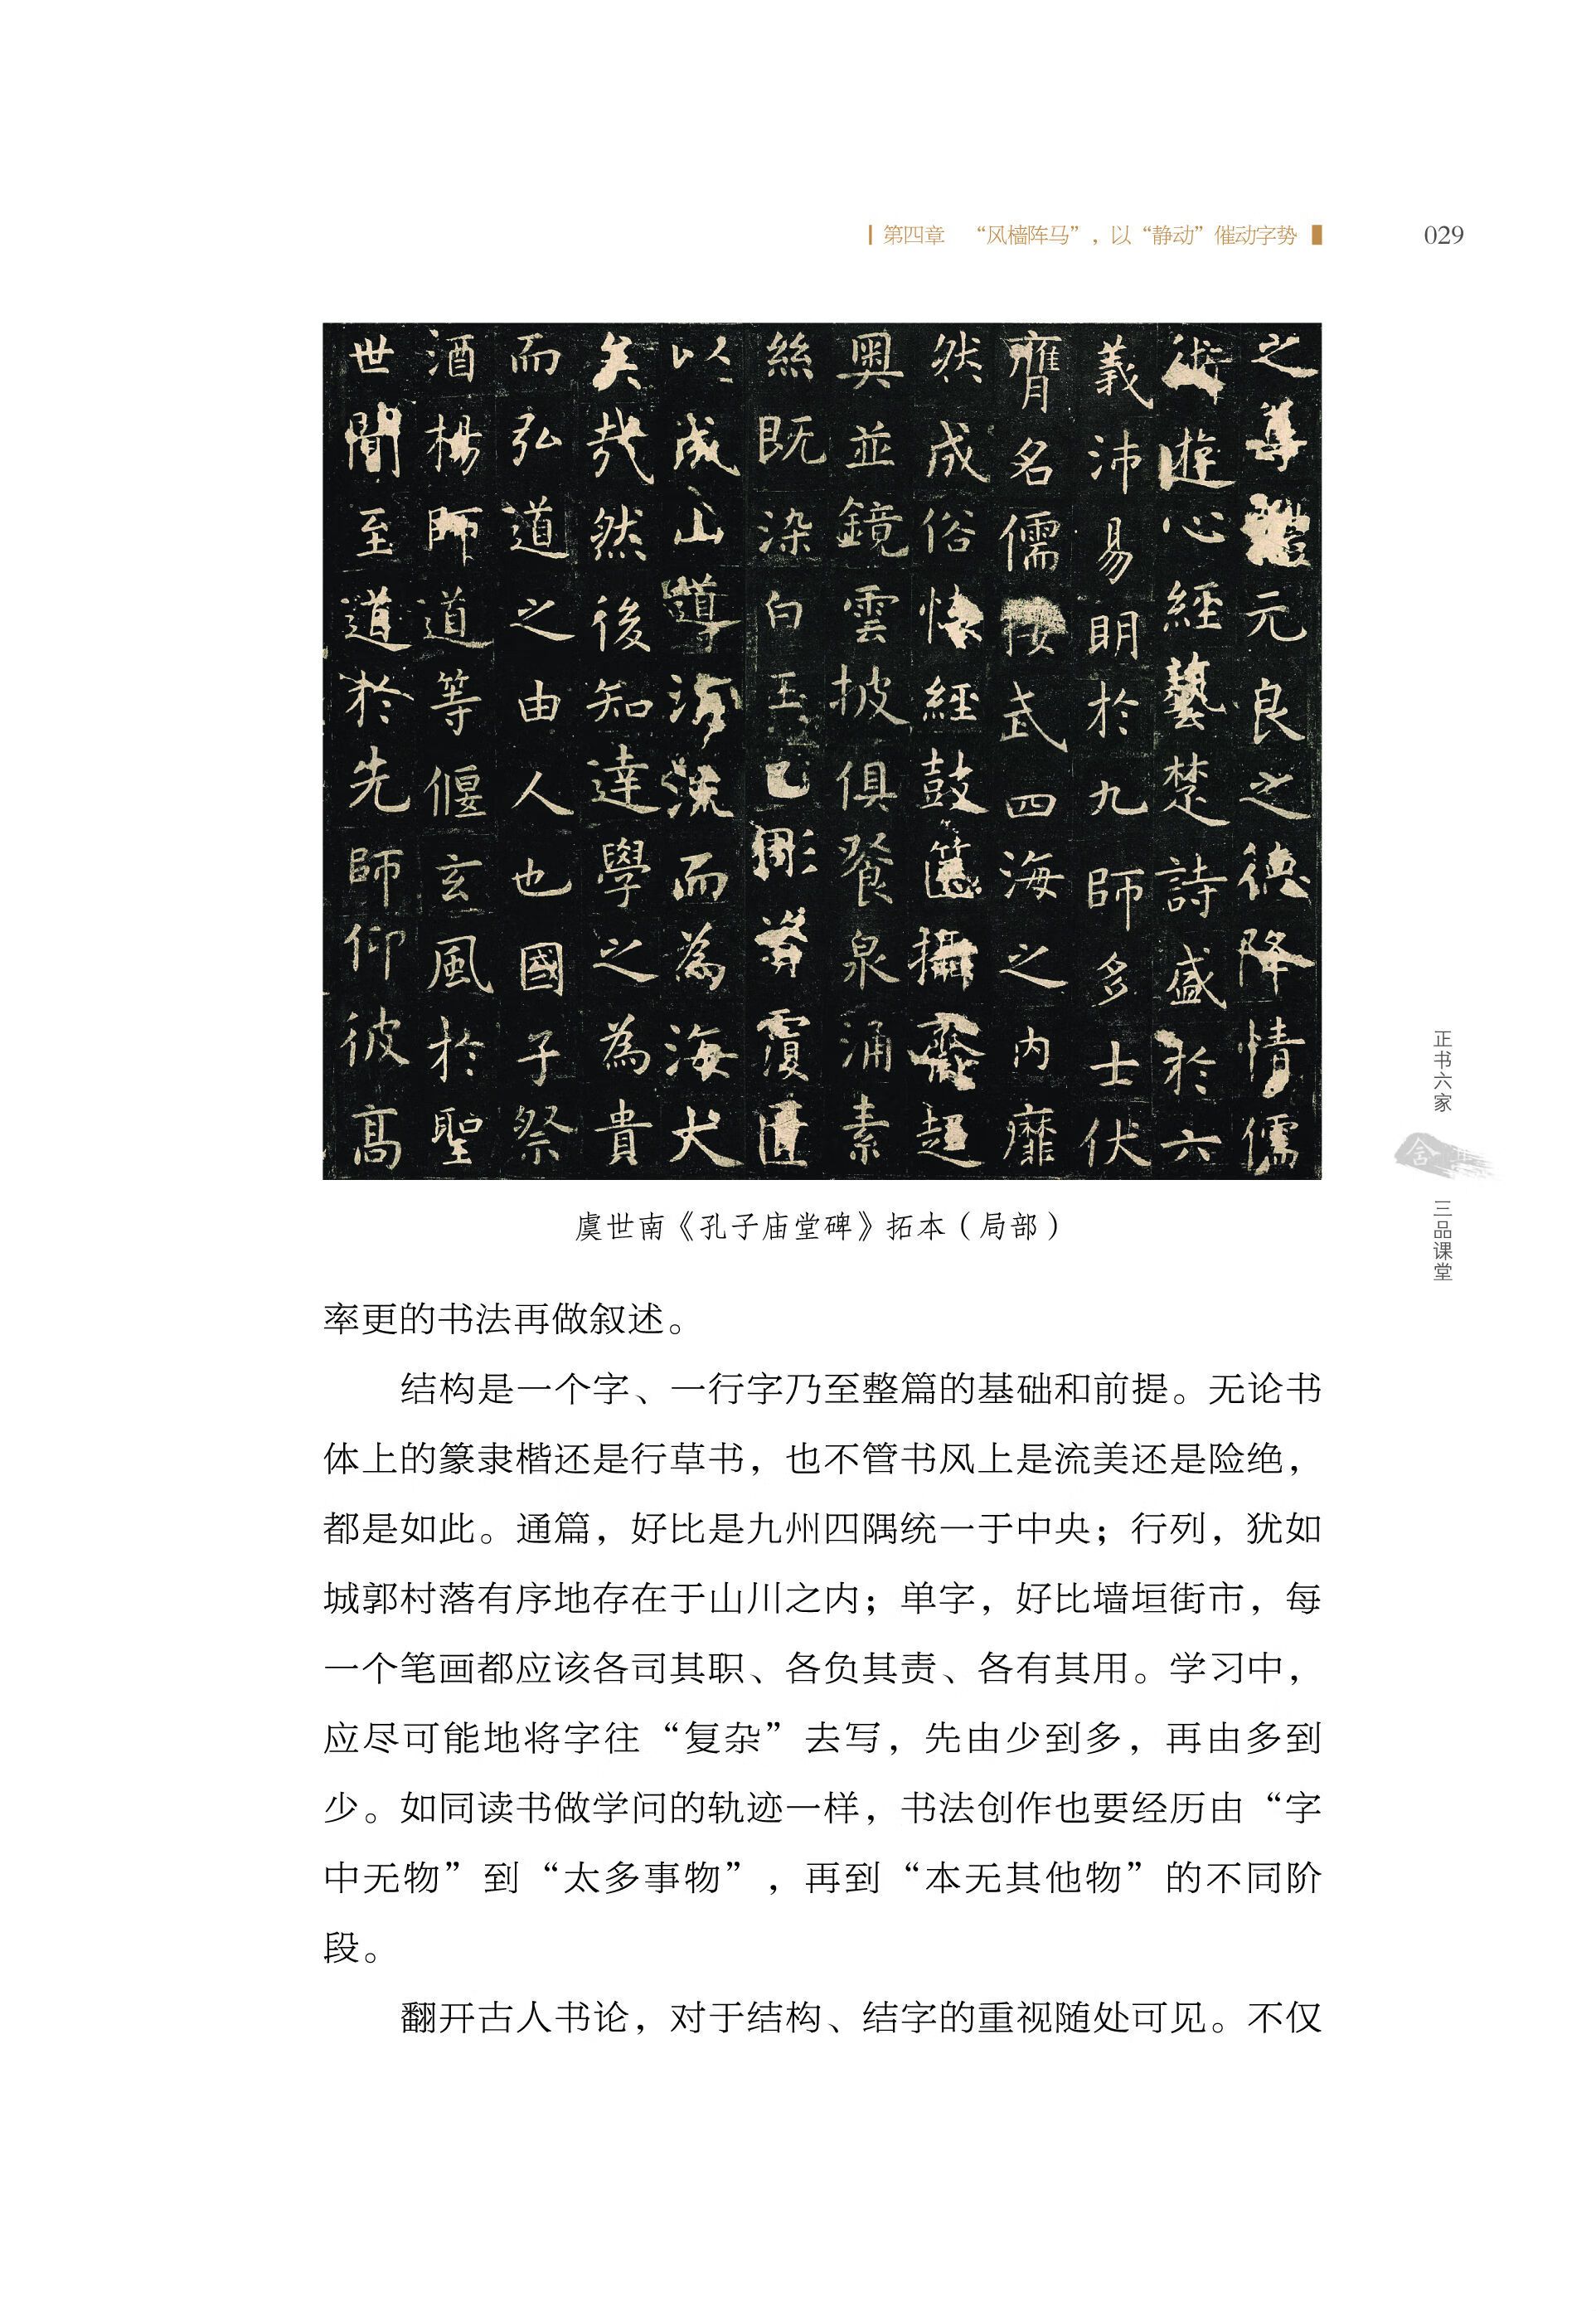 第四章 “风樯阵马”，以“静动”催动字势
029
之尊禮元良之德降情儒
術遊心經藝楚詩盛於六
義沛易明於九師多士伏
膺名儒接武四海之內靡
然成俗懷經鼓篋攝齊趨
奧並鏡雲披俱餐泉涌素
絲既染白玉已彫資覆匱
以成山導涓流而為海大
矣哉然後知達學之為貴
而弘道之由人也國子祭
酒楊師道等偃玄風於聖
世聞至道於先師仰彼高
虞世南《孔子庙堂碑》拓本（局部）
率更的书法再做叙述。
结构是一个字、一行字乃至整篇的基础和前提。无论书
体上的篆隶楷还是行草书，也不管书风上是流美还是险绝，
都是如此。通篇，好比是九州四隅统一于中央；行列，犹如
城郭村落有序地存在于山川之内；单字，好比墙垣街市，每
一个笔画都应该各司其职、各负其责、各有其用。学习中，
应尽可能地将字往“复杂”去写，先由少到多，再由多到
少。如同读书做学问的轨迹一样，书法创作也要经历由“字
中无物”到“太多事物”，再到“本无其他物”的不同阶
段。
翻开古人书论，对于结构、结字的重视随处可见。不仅
正书六家
三品课堂